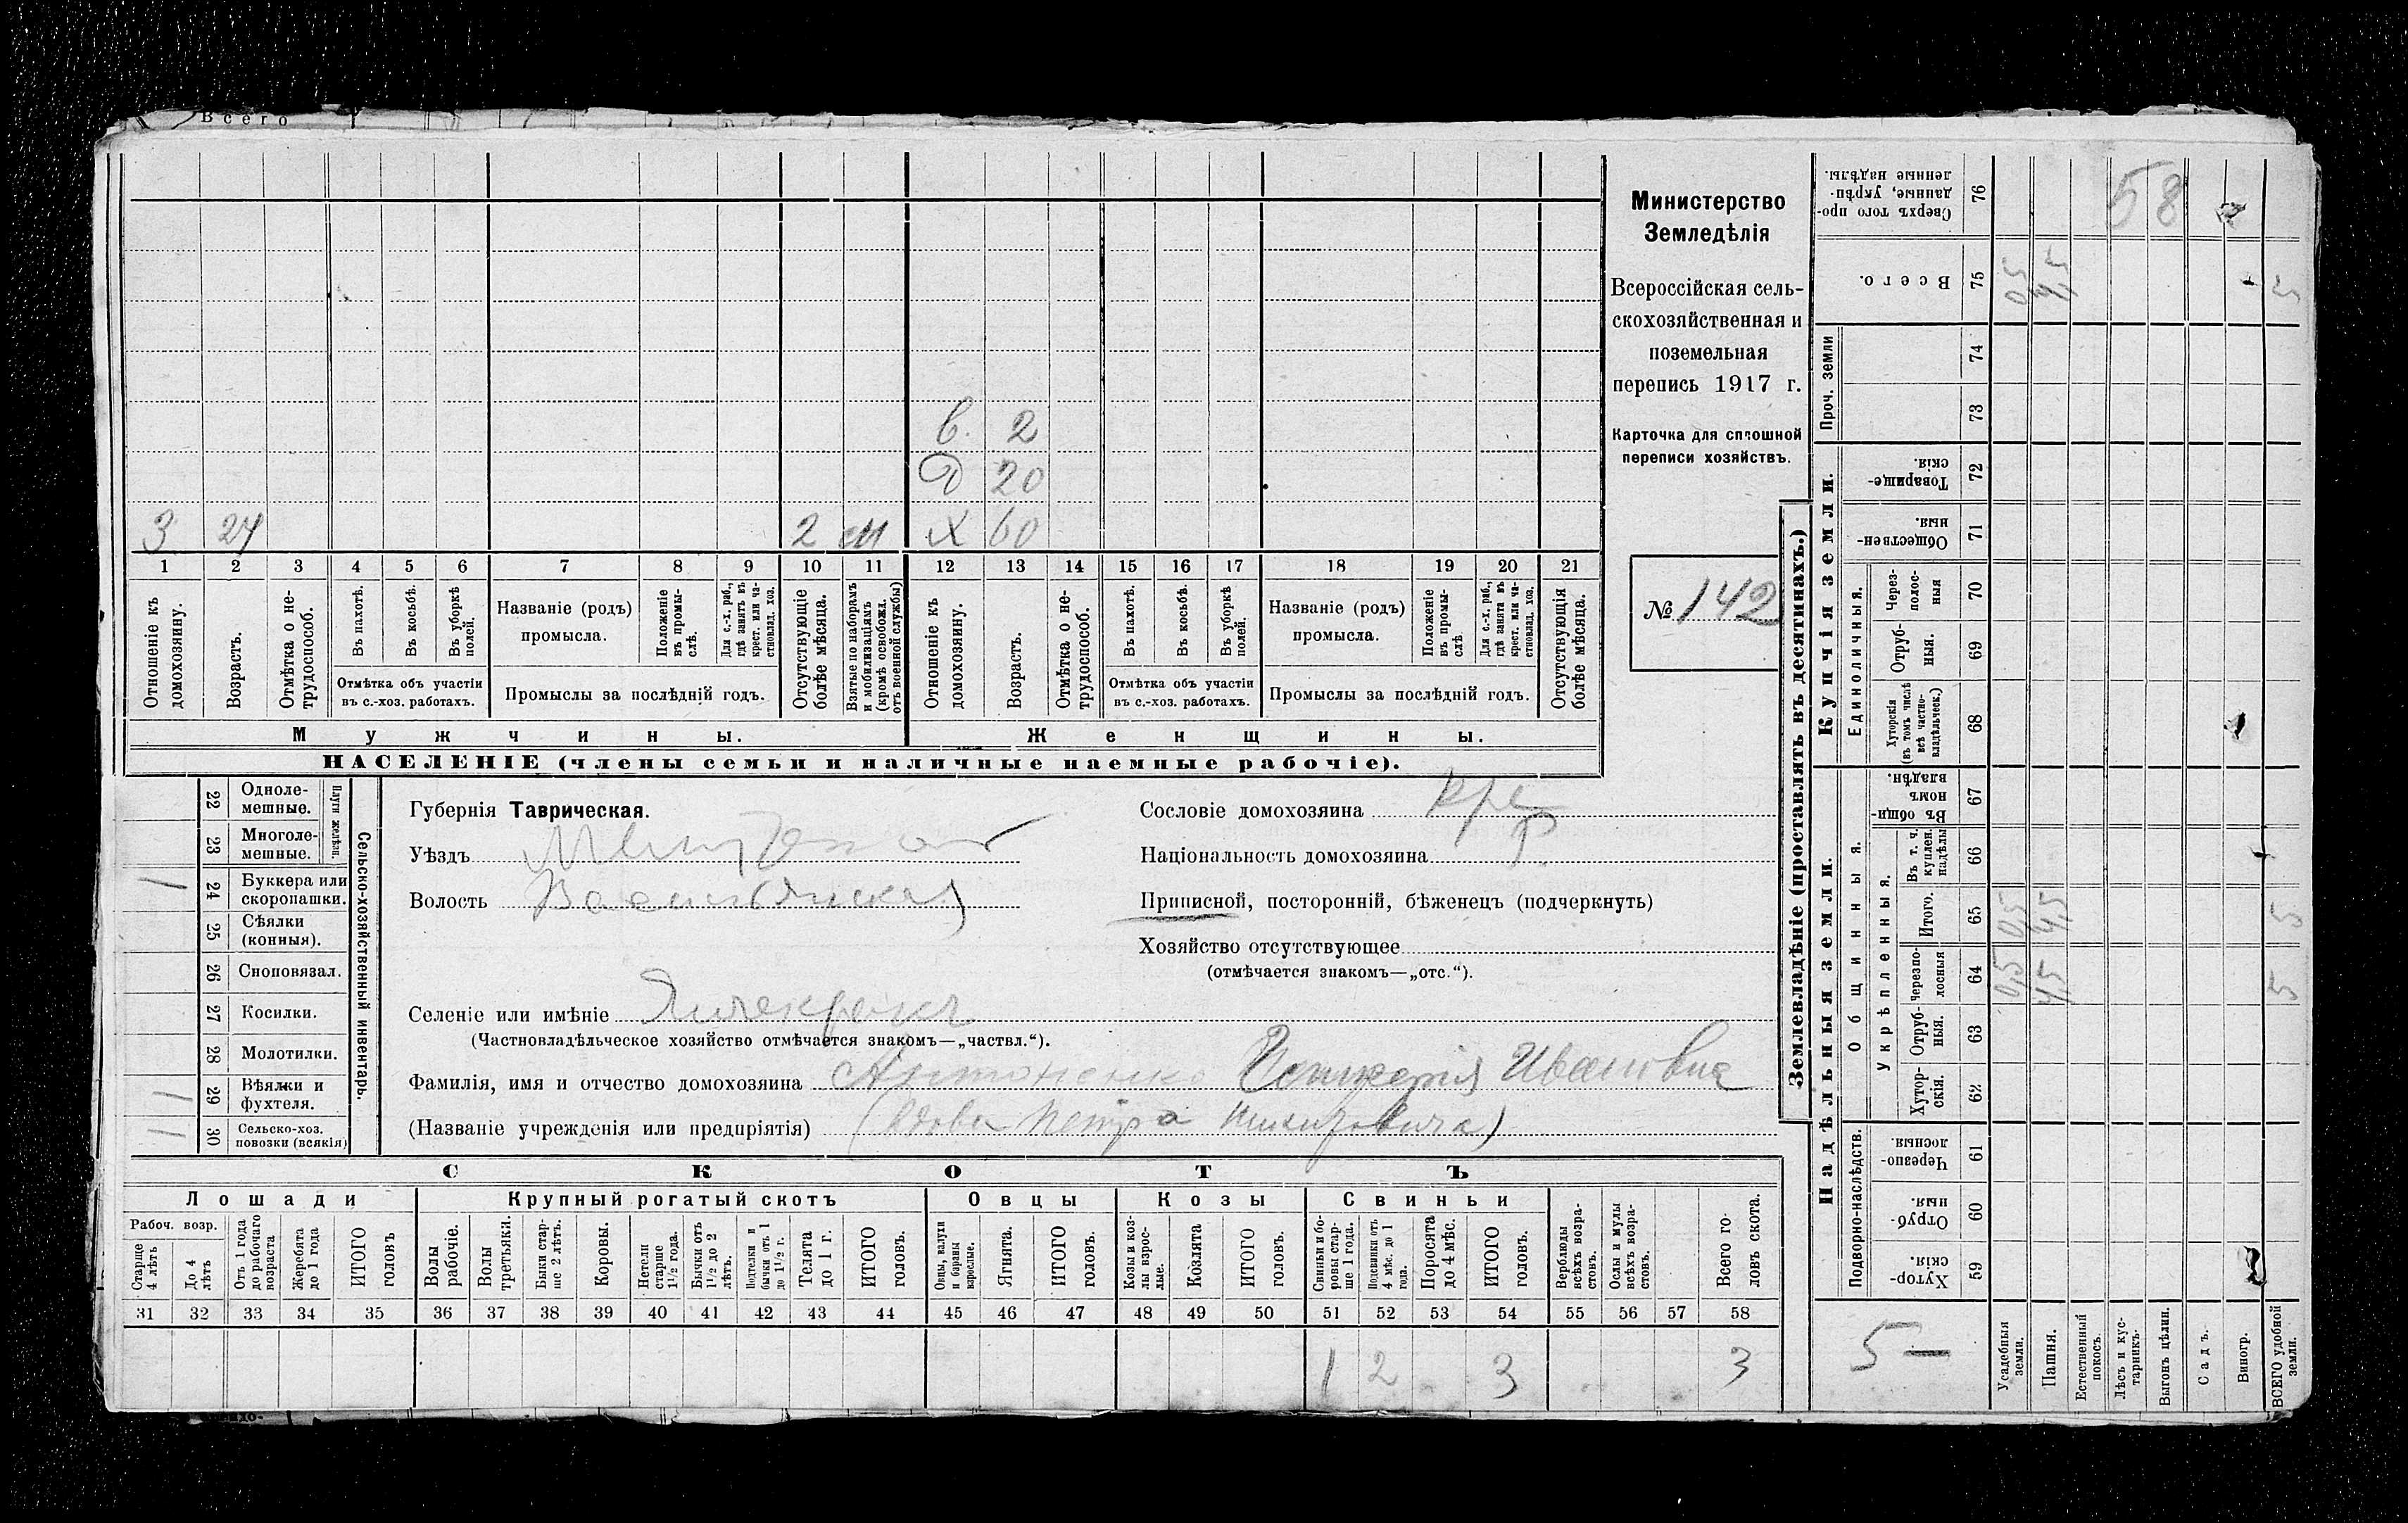 Всего
в. 2
Д 20
З 24 2 см Х 60
1 2 3 4 5 6 7 8 9 10 11 12 13 14 15 16 17 18 19 20 21
Отношеніе къ домохозяину.
Возрастъ.
Отмѣтка о не-трудоспособ.
Въ пахотѣ.
Въ косьбѣ.
Въ уборкѣ полей.
Отмѣтка объ участіи
въ с.-хоз. работахъ.
Названіе (родъ)
промысла.
Положеніе въ промы-слѣ.
Для с.-х. раб., гдѣ занятъ въ крест. или ча-стновлад. хоз.
Промыслы за послѣдній годъ.
Отсутствующіе болѣе мѣсяца.
Взятые по наборамъ и мобилизаціямъ (кромѣ освобожд. отъ военной службы)
Отношеніе къ домохозяину.
Возрастъ.
Отмѣтка о не-трудоспособ.
Въ пахотѣ.
Въ косьбѣ.
Въ уборкѣ полей.
Отмѣтка объ участіи
въ с.-хоз. работахъ.
Названіе (родъ)
промысла.
Положеніе въ промы-слѣ.
Для с.-х. раб., гдѣ занята въ крест. или ча-стновлад. хоз.
Промыслы за послѣдній годъ.
Отсутствующія болѣе мѣсяца.
Мужчины. Женщины.
НАСЕЛЕНІЕ (члены семьи и наличные наемные рабочіе).
Министерство
Земледѣлія
Всероссійская сель-
скохозяйственная и
поземельная
перепись 1917 г.
Карточка для сплошной
переписи хозяйствъ.
№ 142
Сельско-хозяйственный инвентарь.
Плуги желѣзн.
22 Однолемешные.
23 Многолемешные.
1 24 Буккера или скоропашки.
25 Сѣялки (конныя).
26 Сноповязал.
27 Косилки.
28 Молотилки.
1 29 Вѣялки и фухтеля.
1 30 Сельско-хоз. повозки (всякія)
Губернія Таврическая.
Уѣздъ
Волость Васильевская
Селеніе или имѣніе
(Частновладѣльческое хозяйство отмѣчается знакомъ—„частвл.“).
Фамилія, имя и отчество домохозяина Антоненко Ивановна
(Названіе учрежденія или предпріятія) (вдова Петра Никитовича)
Сословіе домохозяина кре
Національность домохозяина Р
Приписной, посторонній, бѣженецъ (подчеркнуть)
Хозяйство отсутствующее
(отмѣчается знакомъ—„отс.“).
СКОТЪ
Лошади Крупный рогатый скотъ Овцы Козы Свиньи
Рабоч. возр.
Старше 4 лѣтъ
До 4 лѣтъ
Отъ 1 года до рабочаго возраста
Жеребята до 1 года
ИТОГО головъ
Волы рабочіе.
Волы третьяки.
Быки стар-ше 2 лѣтъ.
Коровы.
Нетели старше 1½ года.
Бычки отъ 1½ до 2 лѣтъ.
Подтелки и бычки отъ 1 до 1½ г.
Телята до 1 г.
ИТОГО головъ.
Овцы, валухи и бараны взрослые.
Ягнята.
ИТОГО головъ.
Козы и коз-лы взрос-лые.
Козлята
ИТОГО головъ.
Свиньи и бо-ровы стар-ше 1 года.
Подсвинки отъ 4 мѣс. до 1 года.
Поросята до 4 мѣс.
ИТОГО головъ.
Верблюды всѣхъ возра-стовъ.
Ослы и мулы всѣхъ возра-стовъ.
Всего го-ловъ скота.
31 32 33 34 35 36 37 38 39 40 41 42 43 44 45 46 47 48 49 50 51 52 53 54 55 56 57 58
1 2 3 3
Землевладѣніе (проставлять въ десятинахъ.)
Сверхъ того про-данные, укрѣп-ленные надѣлы. 76 58
Всего. 75 0,5 4,5 5
Проч. земли 74
73
Купчія земли.
Товарище-скія. 72
Обществен-ныя. 71
Единоличныя.
Через-полос-ныя 70
Отруб-ныя. 69
Хуторскія (въ томъ числѣ всѣ частно-владѣльческ.) 68
Надѣльныя земли.
Общинныя.
Въ общин-номъ владѣн. 67
Укрѣпленныя.
Въ т. ч. куплен. надѣлы 66
Итого. 65 0,5 4,5 5
Черезпо-лосныя 64 0,5 4,5 5
Отруб-ныя. 63
Хутор-скія. 62
Подворно-наслѣдств.
Черезпо-лосныя. 61
Отруб-ныя. 60
Хутор-скія. 59
5 —
Усадебныя земли.
Пашня.
Естественный покосъ.
Лѣсъ и кус-тарникъ.
Выгонъ цѣлин.
Садъ.
Виногр.
ВСЕГО удобной земли.